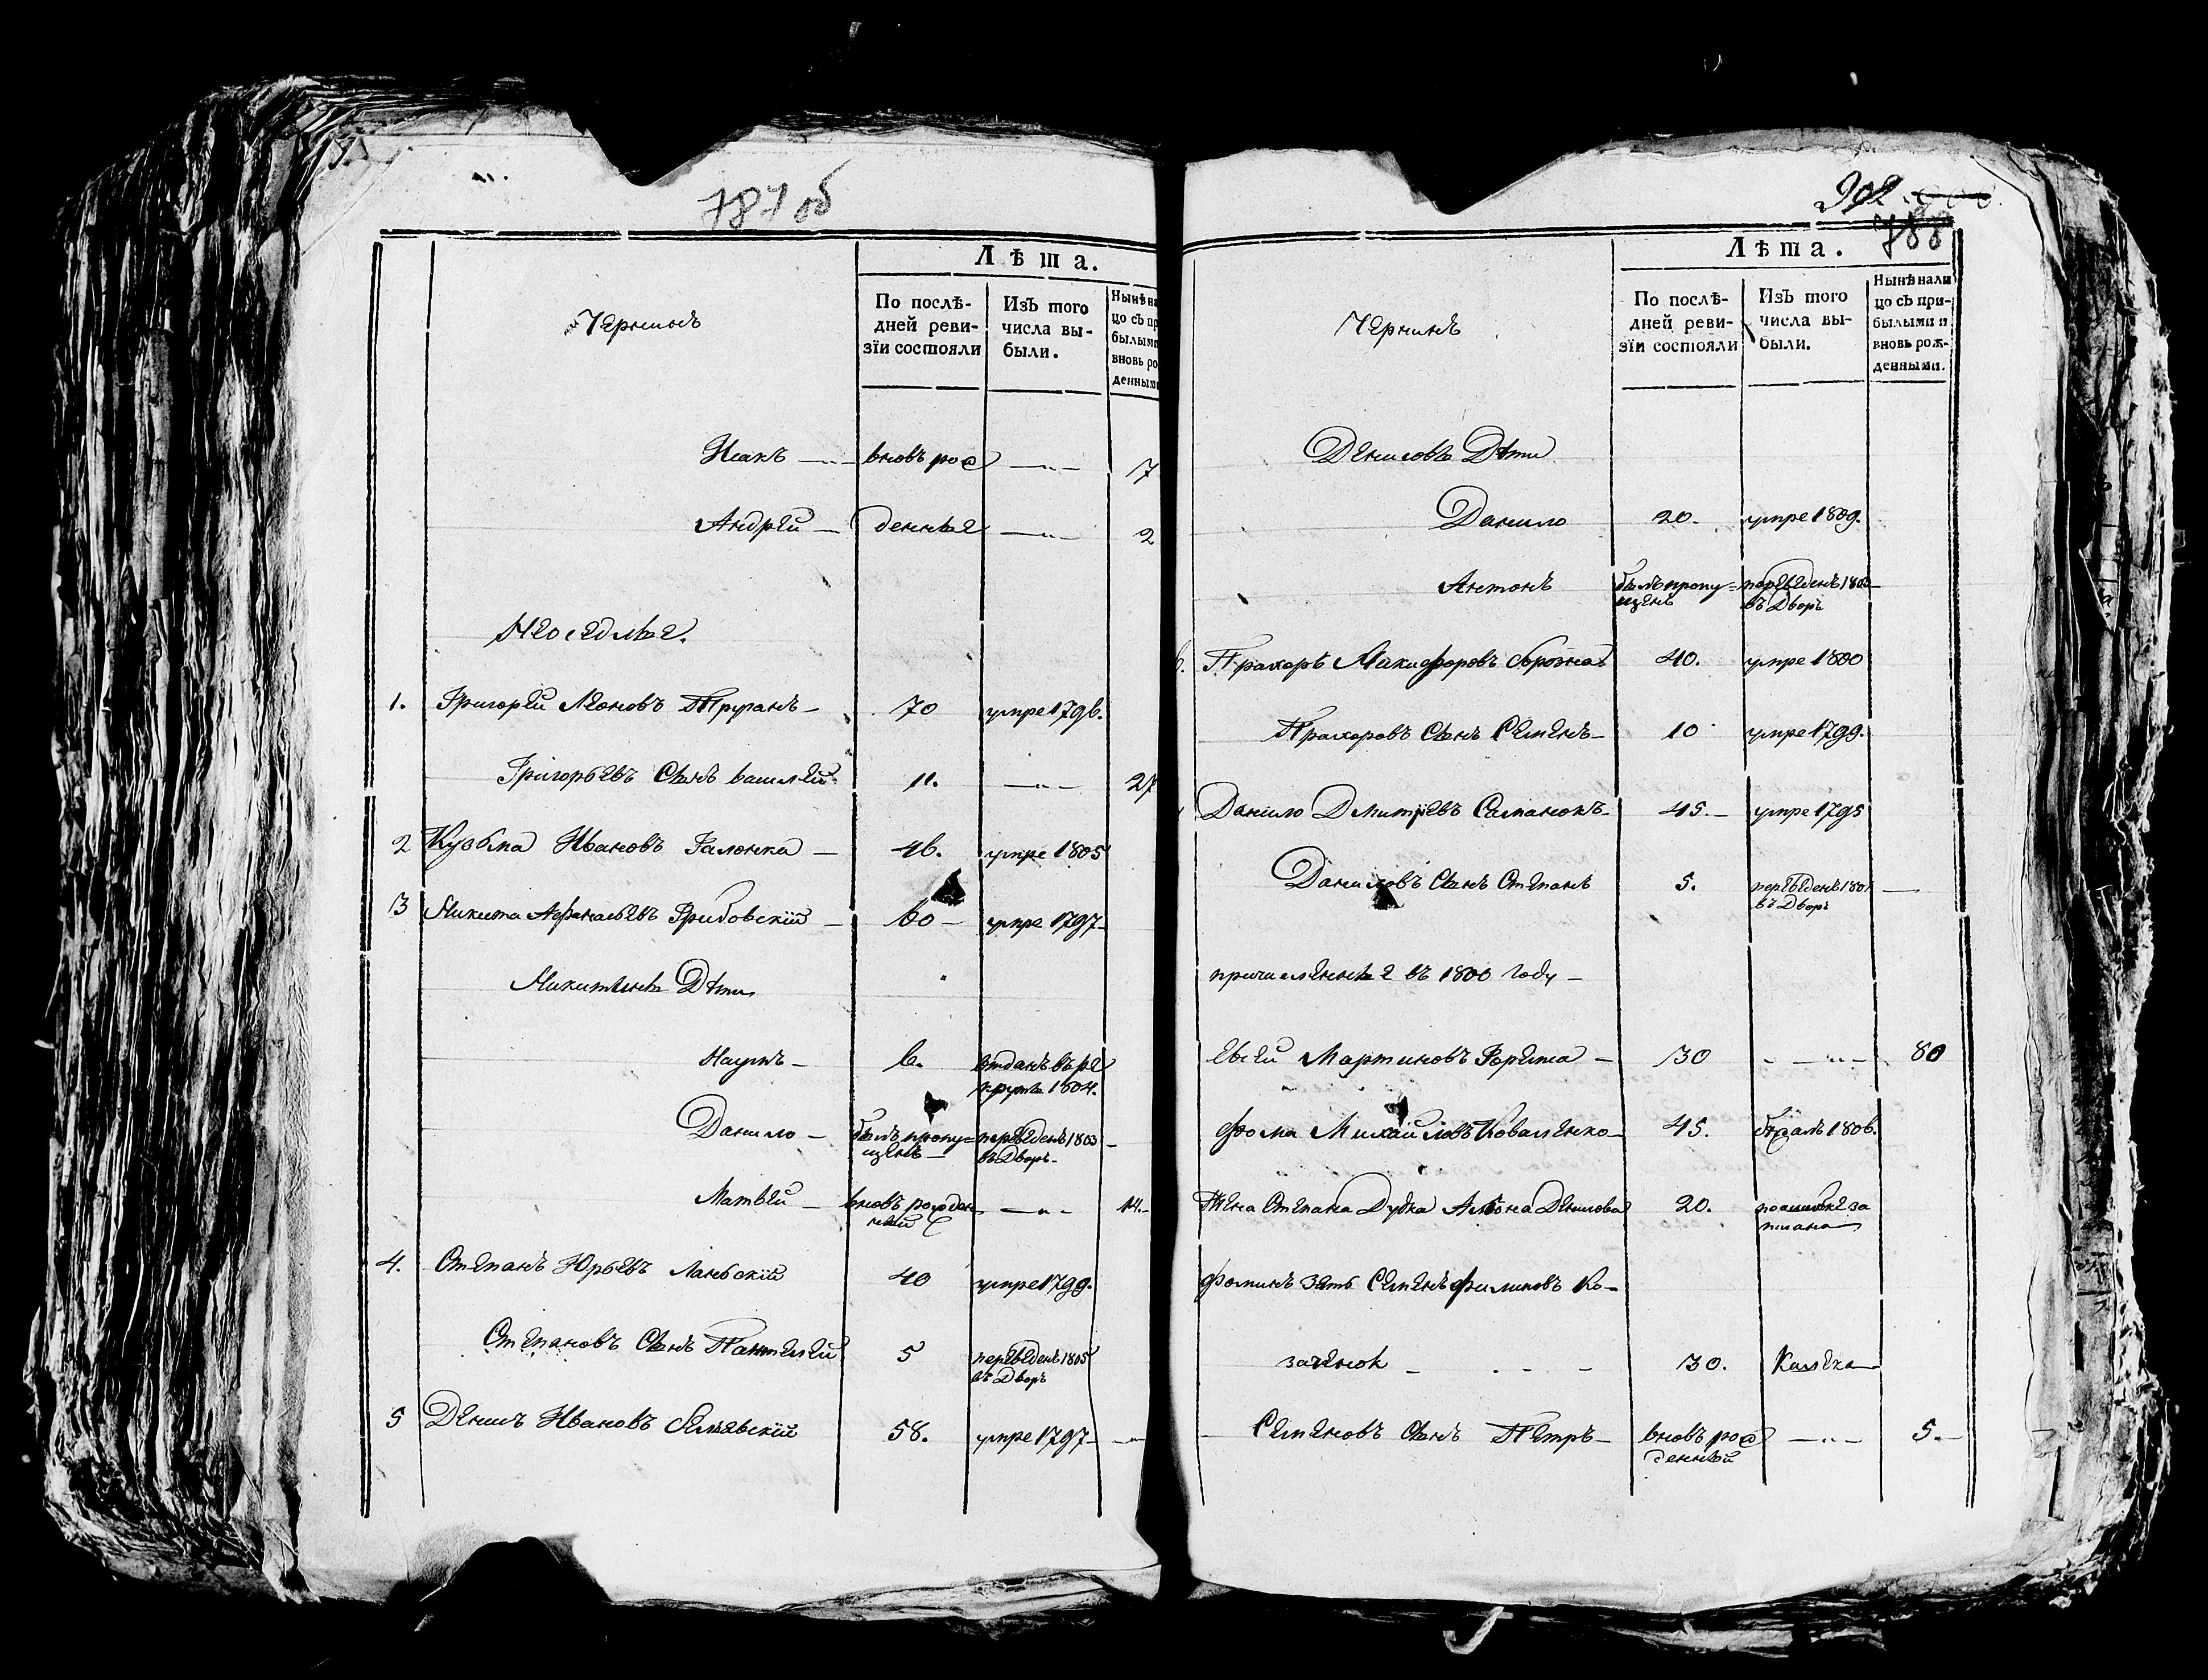 787 об
Чернинъ
Лѣта.
По послѣ-
дней реви-
зїи состояли
Изъ того
числа вы-
были.
Нынѣ на
цо съ пр
былыми
вновь ро
денными
Исакъ — вновь рож — 7
Андрей — денные — 2
Неоседлые.
1. Григорей Леоновъ — 70 умре 1796.
Григорьевъ Сынъ Василей 11. — 27
2 Кузьма Ивановъ Галонка — 46. умре 1805
3 Микита Афанасьевъ Грибовскїй — 60 — умре 1797
Микитины Дѣти
Наумъ — 6. отданъ въ ре
круты 1804.
Данило — былъ пропу= переведенъ 1803 —
щенъ — въ Дворъ
Матвей — вновь рожден — 14.
ный
4. Степанъ Юрьевъ 40 умре 1799.
Степановъ Сынъ Пантелей 5 переведенъ 1805
въ Дворъ
5 Денисъ Ивановъ 58. умре 1797 —
902.
788
Чернинъ
Лѣта.
По послѣ-
дней реви-
зїи состояли
Изъ того
числа вы-
были.
Нынѣ нали
цо съ при-
былыми и
вновь рож-
денными.
Денисовы Дѣти
Данило 20. умре 1809.
Антонъ былъ пропу= переведенъ 1803
щенъ въ Дворъ
6. Прахоръ Микифоровъ 40. умре 1800
Прахоровъ Сынъ Семенъ — 10 умре 1799.
Данило Дмитрїевъ Саманокъ — 45. — умре 1795
Даниловъ Сынъ Степанъ 5. переведенъ 1801 —
въ Дворъ
причисленные въ 1800 году —
Евсей Мартиновъ — 30 — 80
Фома Михайловъ Коваленко — 45. бежалъ 1806.
Жена Степана Дудка Алёна Денисова 20. поошибке за
писана
Фоминъ зять Семенъ Филиповъ Ко-
заченок — 30. Калека
Семеновъ Сынъ Петръ — вновь рож — 5. —
денной